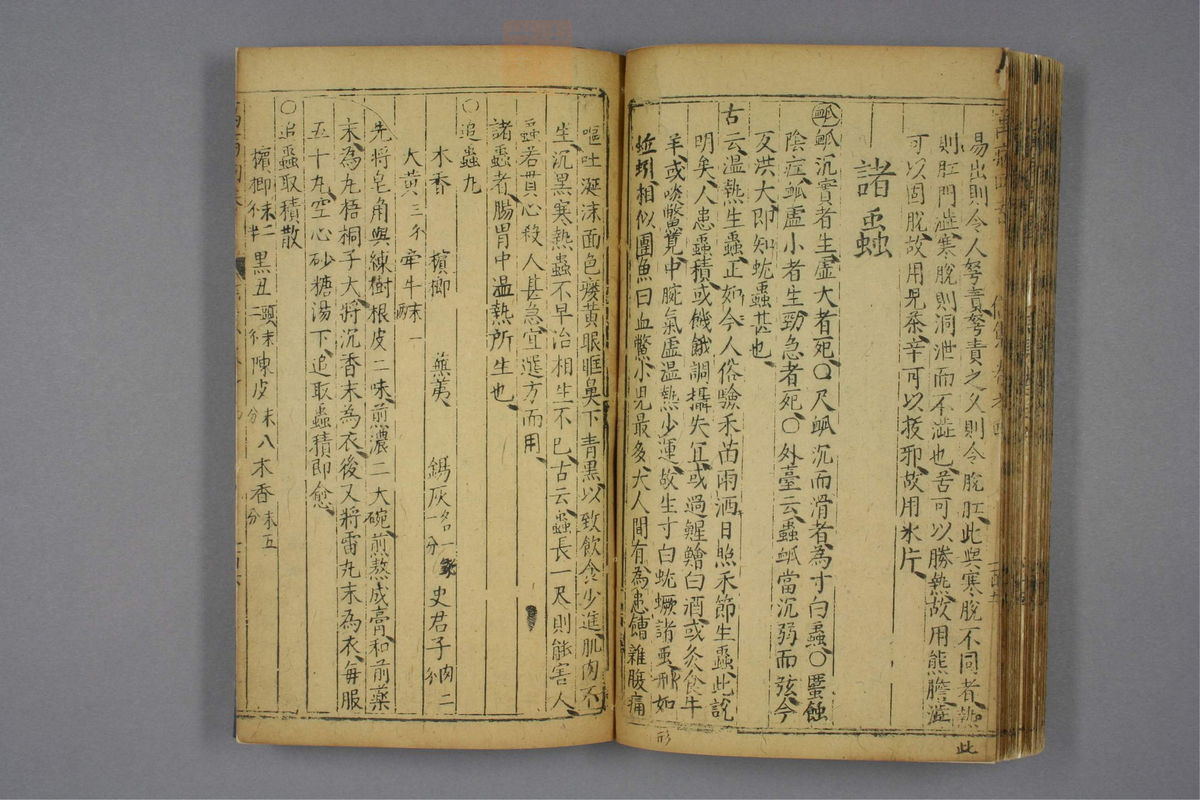 易出則令人努責努責之久則令脫肛此與寒脫不同者熱
則肛門澁寒脫則洞泄而不澁也苦可以勝熱故用熊膽澁
可以固脫故用兒茶辛可以拔邪故用氷片
諸蟲
脉沉實者生虛大者死〇尺脉沉而滑者為寸白蟲〇䘌蝕
陰症脉虛小者生勁急者死〇外臺云蟲脉當沉弱而弦今
反洪大即知蚘蟲甚也
古云温熱生蟲正如今人俗驗禾苗雨洒日照禾節生蟲此說
明矣人患蟲積或饑餓調攝失宜或過鯹鱠白酒或灸食牛
羊或啖鱉莧中脘氣虛温熱少運故生寸白蚘蟯諸虫形如
蚯蚓相似團魚曰血鱉小兒最多大人間有為患饍雜腹痛
形
此
嘔吐涎沫面色痿黃眼眶鼻下青黑以致飲食少進肌肉不
生沉黑寒熱蟲不早治相生不已古云蟲長一尺則能害人
蟲若貫心殺人甚急宜遂方而用
諸蟲者腸胃中温熱所生也
〇追蟲丸
木香 檳榔 蕪荑 錫灰名一錢一分 史君子肉二
大黃三 牽牛末一兩
先將皂角與練樹根皮二味煎濃二大碗煎熬成膏和前藥
末為丸梧桐子大將沉香末為衣後又將雷丸末為衣每服
五十丸空心砂糖湯下追取蟲積即愈
〇追蟲取積散
檳榔末二斤半 黑丑頭末二斤 陳皮末八分 木香末五分